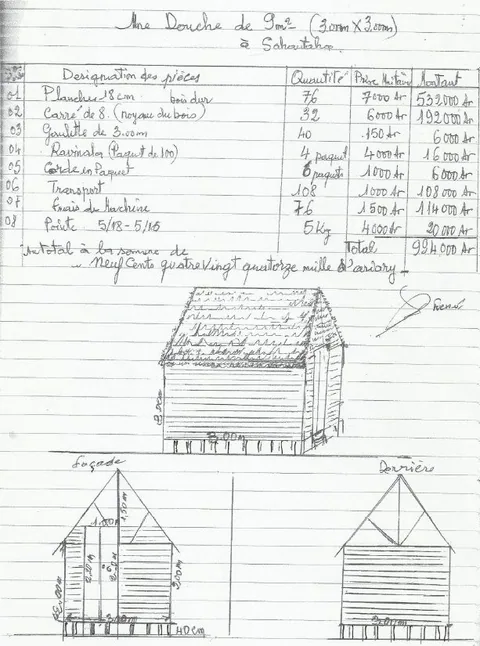 Une Douche de 9m² (3.00m X 3.00m)
à Sahoutaha
Designation des pièces Quantité Prix Unitaire Montant
01 Planches 18cm bois dur 76 7000 Ar 532000 Ar
02 Carré de 8. (noyau du bois) 32 6000 Ar 192000 Ar
03 Goulette de 3.00m 40 150 Ar 6000 Ar
04 Ravinala (Paquet de 100) 4 paquet 4000 Ar 16000 Ar
05 Corde en Paquet 6 paquets 1000 Ar 6000 Ar
06 Transport 108 1000 Ar 108000 Ar
07 Frais de Machine 76 1500 Ar 114000 Ar
08 Pointe 5/18 - 5/16 5 Kg 4000 Ar 20000 Ar
Total à la somme de Total 994000 Ar
Neuf Cents quatre vingt quatorze mille d'ariary
3.00m
Façade
Derrière
1.50m
1.00m
2.00m
3.00m
40cm
3.00m